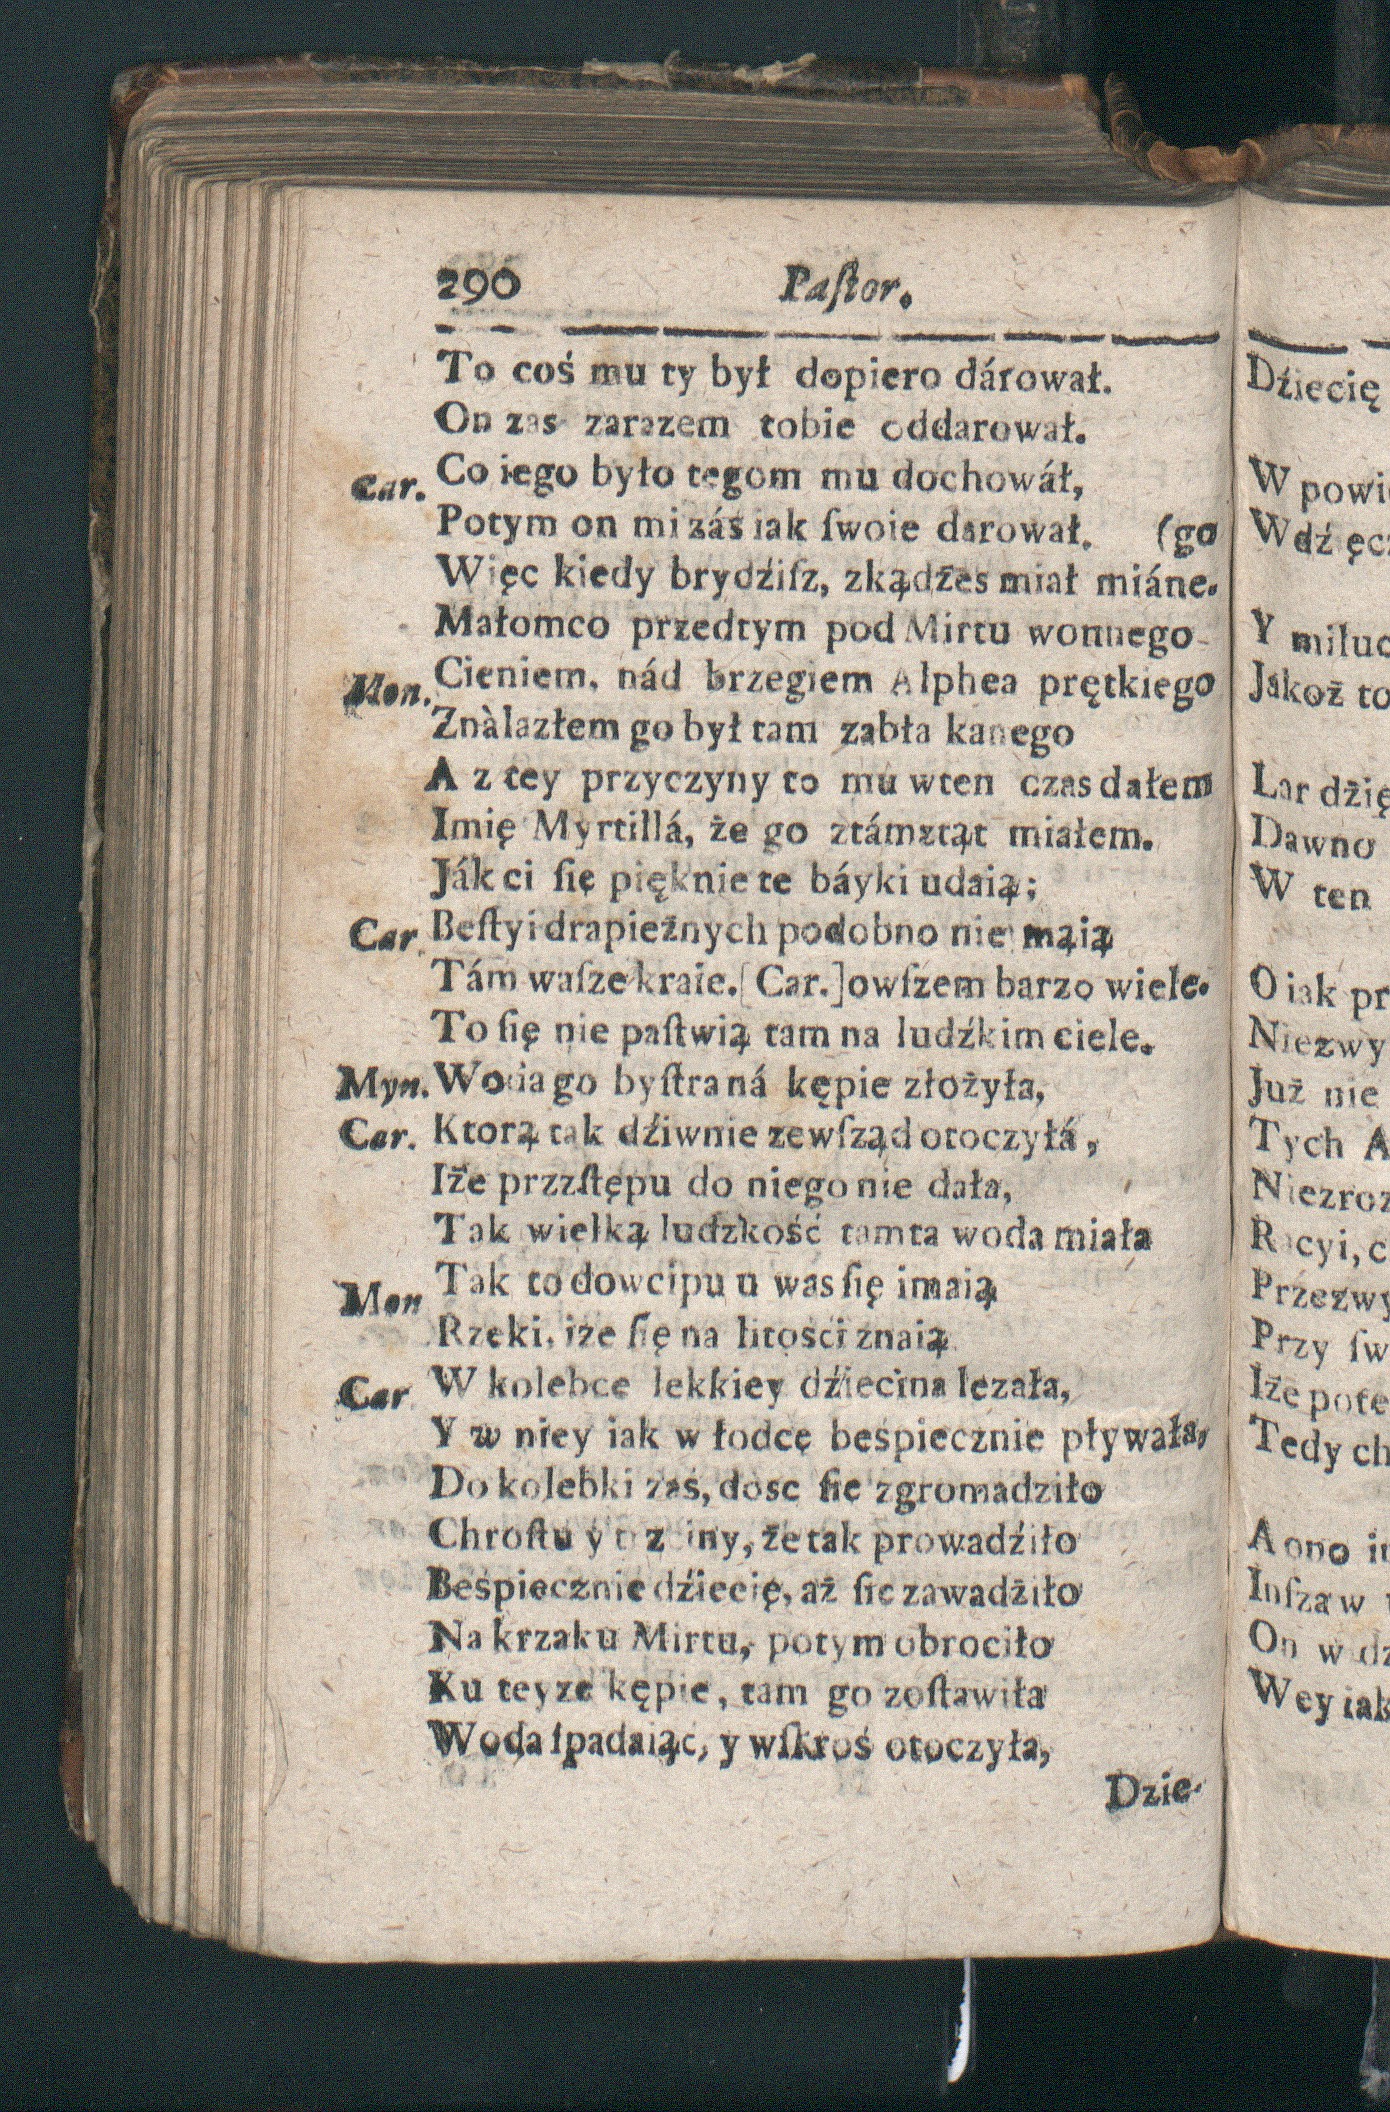 290 Paſtor.
To coś mu ty był dopiero dárował.
On zas zarazem tobie oddarował.
Car. Co iego było tegom mu dochowáł,
Potym on mi zás iak ſwoie darował. (go
Więc kiedy brydźiſz, zkądżes miał miáne.
Małomco przedtym pod Mirtu wonnego
Mon. Cieniem, nád brzegiem Alphea prętkiego
Znàlazłem go był tam zabła kanego
A z tey przyczyny to mu wten czas dałem
Imię Myrtillá, że go ztámztąt miałem.
Ják ci ſię pięknie te báyki udaią;
Car. Beſtyi drapieżnych podobno nie mąią
Tám waſze kraie. [Car.] owſzem barzo wiele.
To ſię nie paſtwią tam na ludźkim ciele.
Myn. Woda go byſtra ná kępie złożyła,
Car. Ktorą tak dźiwnie zewſząd otoczyłá,
Iże przzſtępu do niego nie dała,
Tak wielką ludzkość tamta woda miała
Mon Tak to dowcipu u was ſię imaią
Rzeki, iże ſię na litości znaią
Car W kolebce lekkiey dźiecina lezała,
Y w niey iak w łodce beśpiecznie pływała,
Do kolebki zaś, dosc ſie zgromadziło
Chroſtu y ny, że tak prowadźiło
Beśpiecznie dźiecię, aż ſie zawadźiło
Na krzaku Mirtu, potym obrociło
Ku teyze kępie, tam go zoſtawiła
Woda ſpadaiąc, y wſkroś otoczyła,
Dzie-
Dźiecię
W
W
Y
Jakoż to
Lar
Dawno
W ten
O iak
Już nie
Tych
Przy
Iże
Tedy
A ono
On w
Wey iak